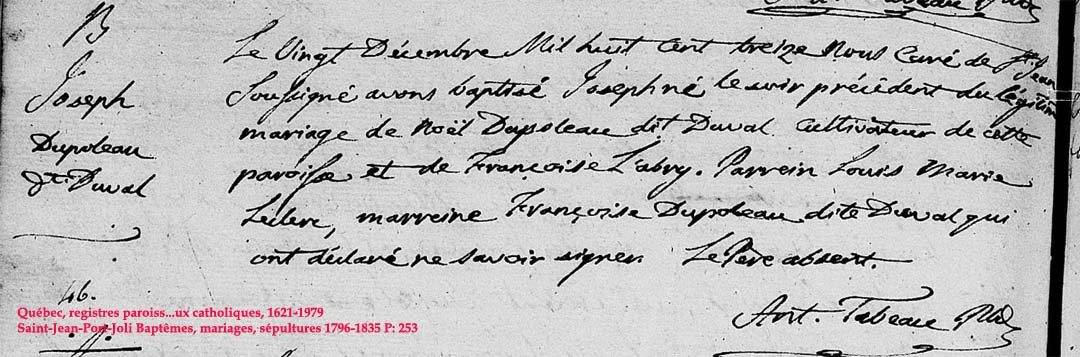 B
Joseph
Dupoleau
dt. Duval
Le Vingt Décembre Mil huit cent treize Nous Curé de St. Jean
Soussigné avons baptisé Joseph né le soir précédent du légitime
mariage de Noël Dupoleau dit Duval cultivateur de cette
paroisse et de Françoise L'abry. Parrein Louis Marie
Leclerc, marreine Françoise Dupoleau dite Duval qui
ont déclaré ne savoir signer. Le Père absent.
Ant. Tabeau Ptre
46.
Québec, registres paroiss...ux catholiques, 1621-1979
Saint-Jean-Port-Joli Baptêmes, mariages, sépultures 1796-1835 P: 253